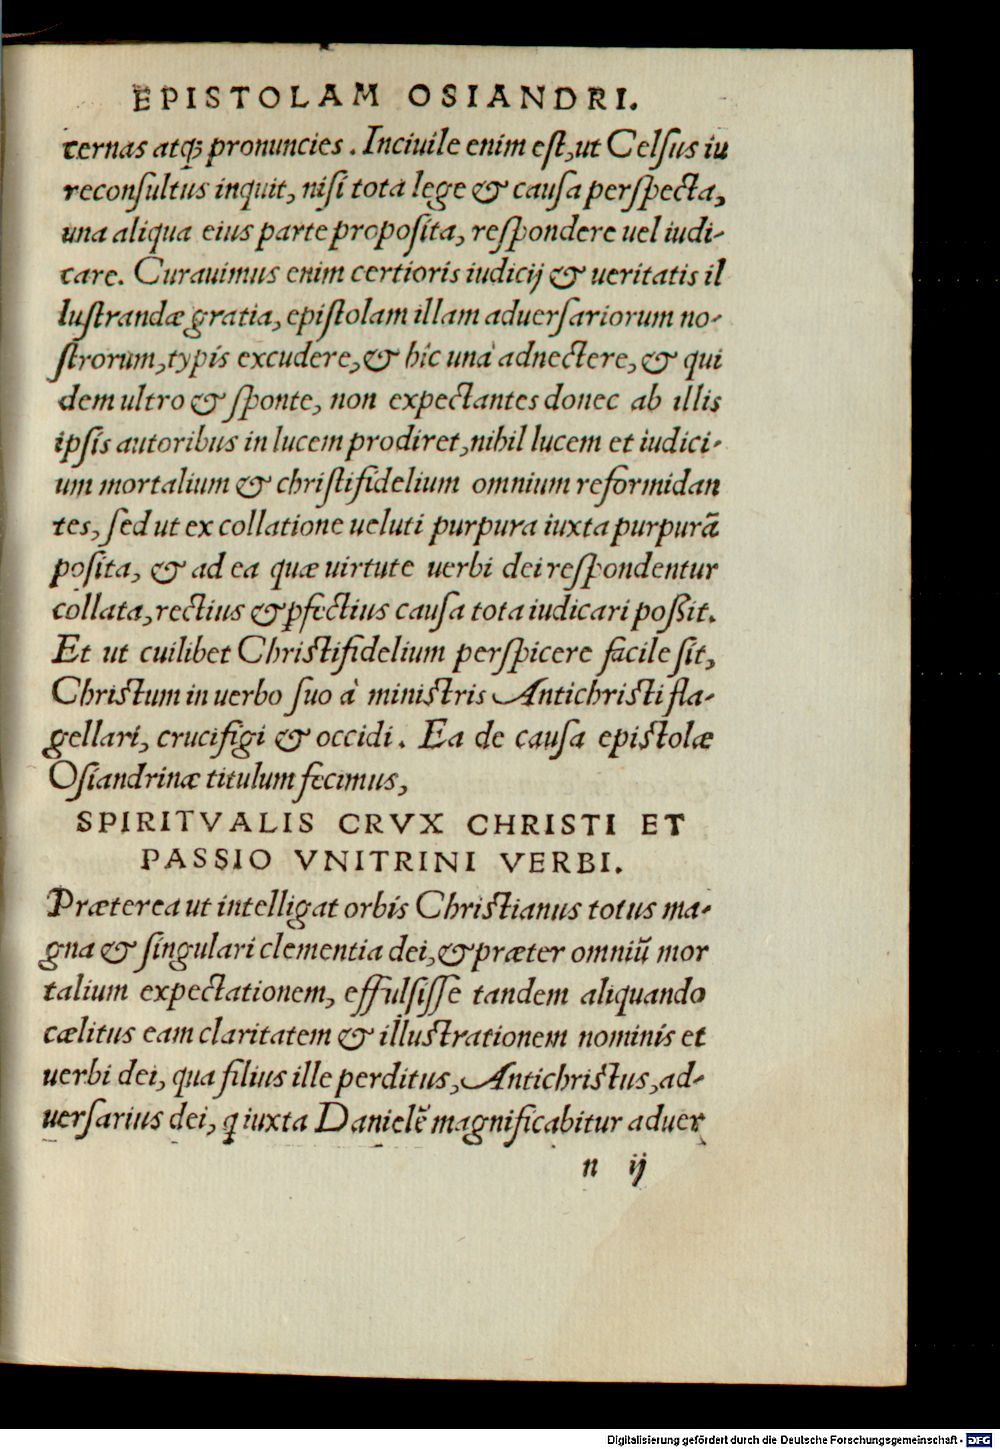 EPISTOLAM OSIANDRI.
ternas atq́ꝫ pronuncies. Inciuile enim est, ut Celsus iu
reconsultus inquit, nisi tota lege & causa perspecta,
una aliqua eius parte proposita, respondere uel iudi-
care. Curauimus enim certioris iudicij & ueritatis il
lustrandæ gratia, epistolam illam aduersariorum no-
strorum, typis excudere, & hîc unà adnectere, & qui
dem ultro & sponte, non expectantes donec ab illis
ipsis autoribus in lucem prodiret, nihil lucem et iudici-
um mortalium & christifidelium omnium reformidan
tes, sed ut ex collatione ueluti purpura iuxta purpurã
posita, & ad ea quæ uirtute uerbi dei respondentur
collata, rectius & ꝑfectius causa tota iudicari poßit.
Et ut cuilibet Christifidelium perspicere facile sit,
Christum in uerbo suo à ministris Antichristi fla-
gellari, crucifigi & occidi. Ea de causa epistolæ
Osiandrinæ titulum fecimus,
SPIRITVALIS CRVX CHRISTI ET
PASSIO VNITRINI VERBI.
Præterea ut intelligat orbis Christianus totus ma-
gna & singulari clementia dei, & præter omniũ mor
talium expectationem, effulsisse tandem aliquando
cælitus eam claritatem & illustrationem nominis et
uerbi dei, qua filius ille perditus, Antichristus, ad-
uersarius dei, q iuxta Danielẽ magnificabitur aduer
n ij
Digitalisierung gefördert durch die Deutsche Forschungsgemeinschaft - DFG